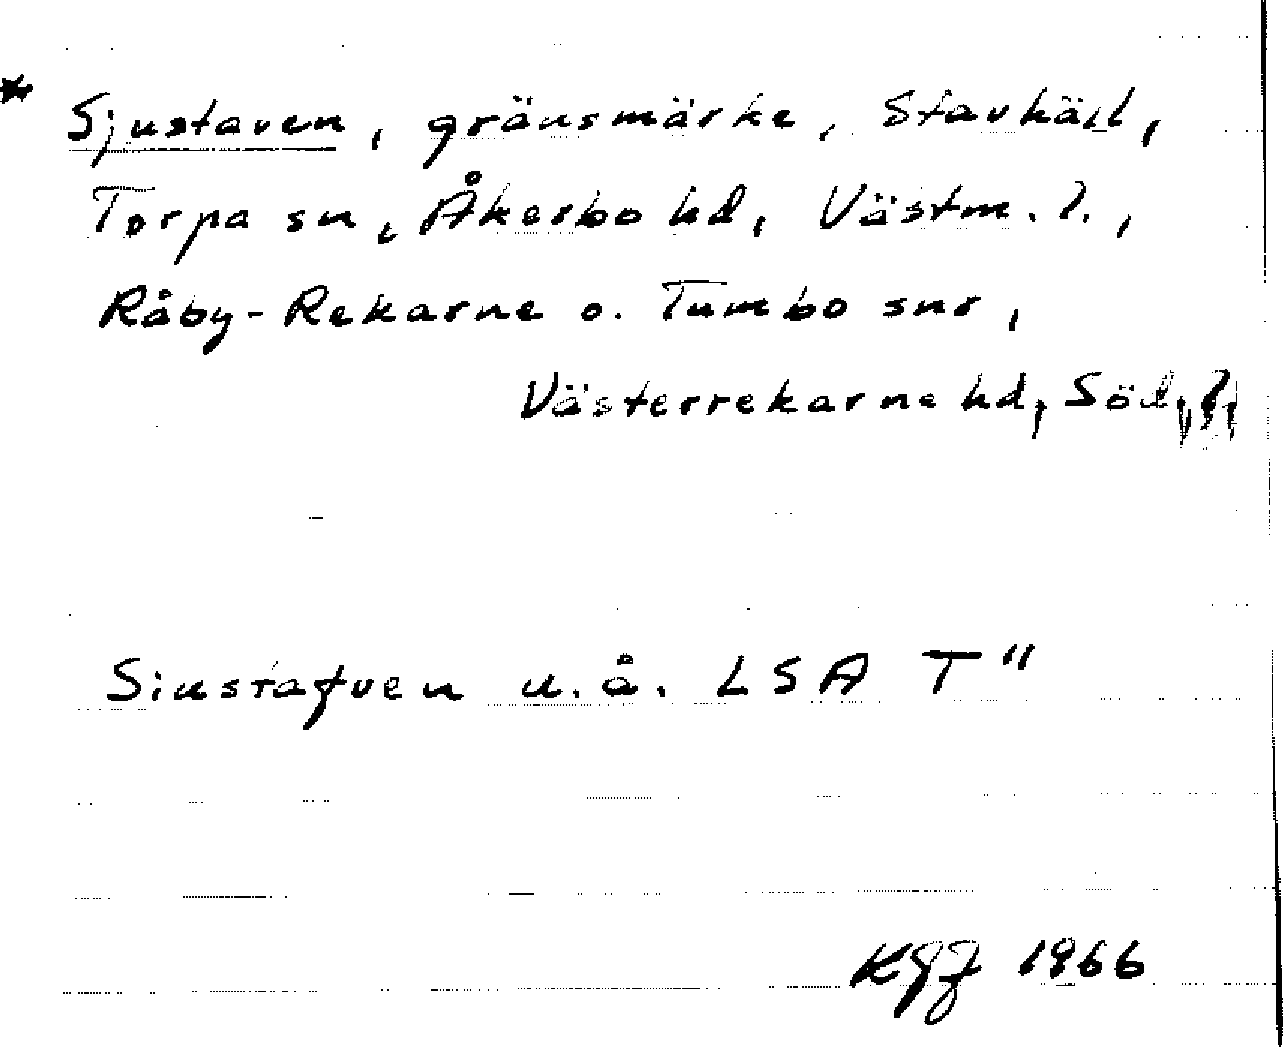 * Sjustaven, gränsmärke, Stavkäll,
Torpa sn, Åkerbo hd, Västm. l.,
Råby-Rekarne o. Tumbo snr,
Västerrekarne hd, Söd. l.
Siustafven u.å. LSA T"
KGJ 1966